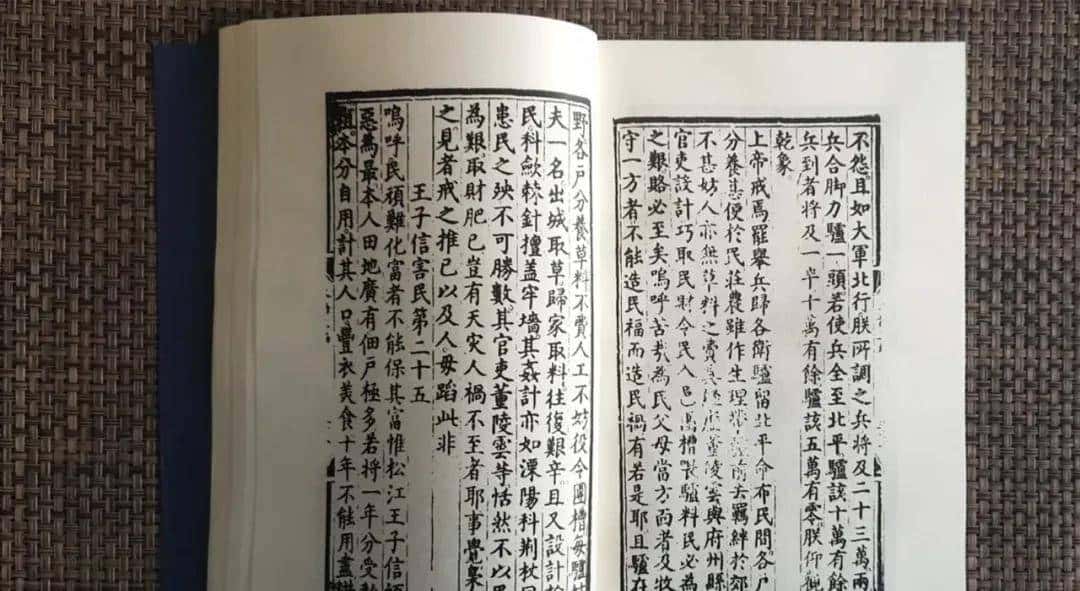 不怨且如大軍北行朕所調之兵將及二十三萬兩
兵合脚力驢一頭若使兵全至北平驢該十萬有餘
兵到者將及一半十萬有餘驢該五萬有零朕仰觀
乾象
上帝戒焉罷舉兵歸各衛驢留北平命布民間各戶
分養甚便於民莊農雖作生理帶前去羈絆於郊
不甚妨人亦無草料之費董陵雲與府州縣
官吏設計巧取民財令民入邑槽驢料民必為
之艱賂必至矣嗚呼苦哉為民父母當方面者及牧
守一方者不能造民福而造民禍有若是耶且驢在
野各戶分養草料不費人工不妨役今團槽每驢
夫一名出城取草歸家取料往復艱辛且又設計於
民科歛棘針擅蓋牢墻其姦計亦如溧陽科荆杖
患民之殃不可勝數其官吏董陵雲等恬然不以
為艱取財肥已豈有天災人禍不至者耶事覺梟
之見者戒之推已以及人毋蹈此非
王子信害民第二十五
嗚呼民頑難化富者不能保其富惟松江王子信
惡為最本人田地廣有佃戶極多若將一年分受
租本分自用計其人口豐衣美食十年不能用盡